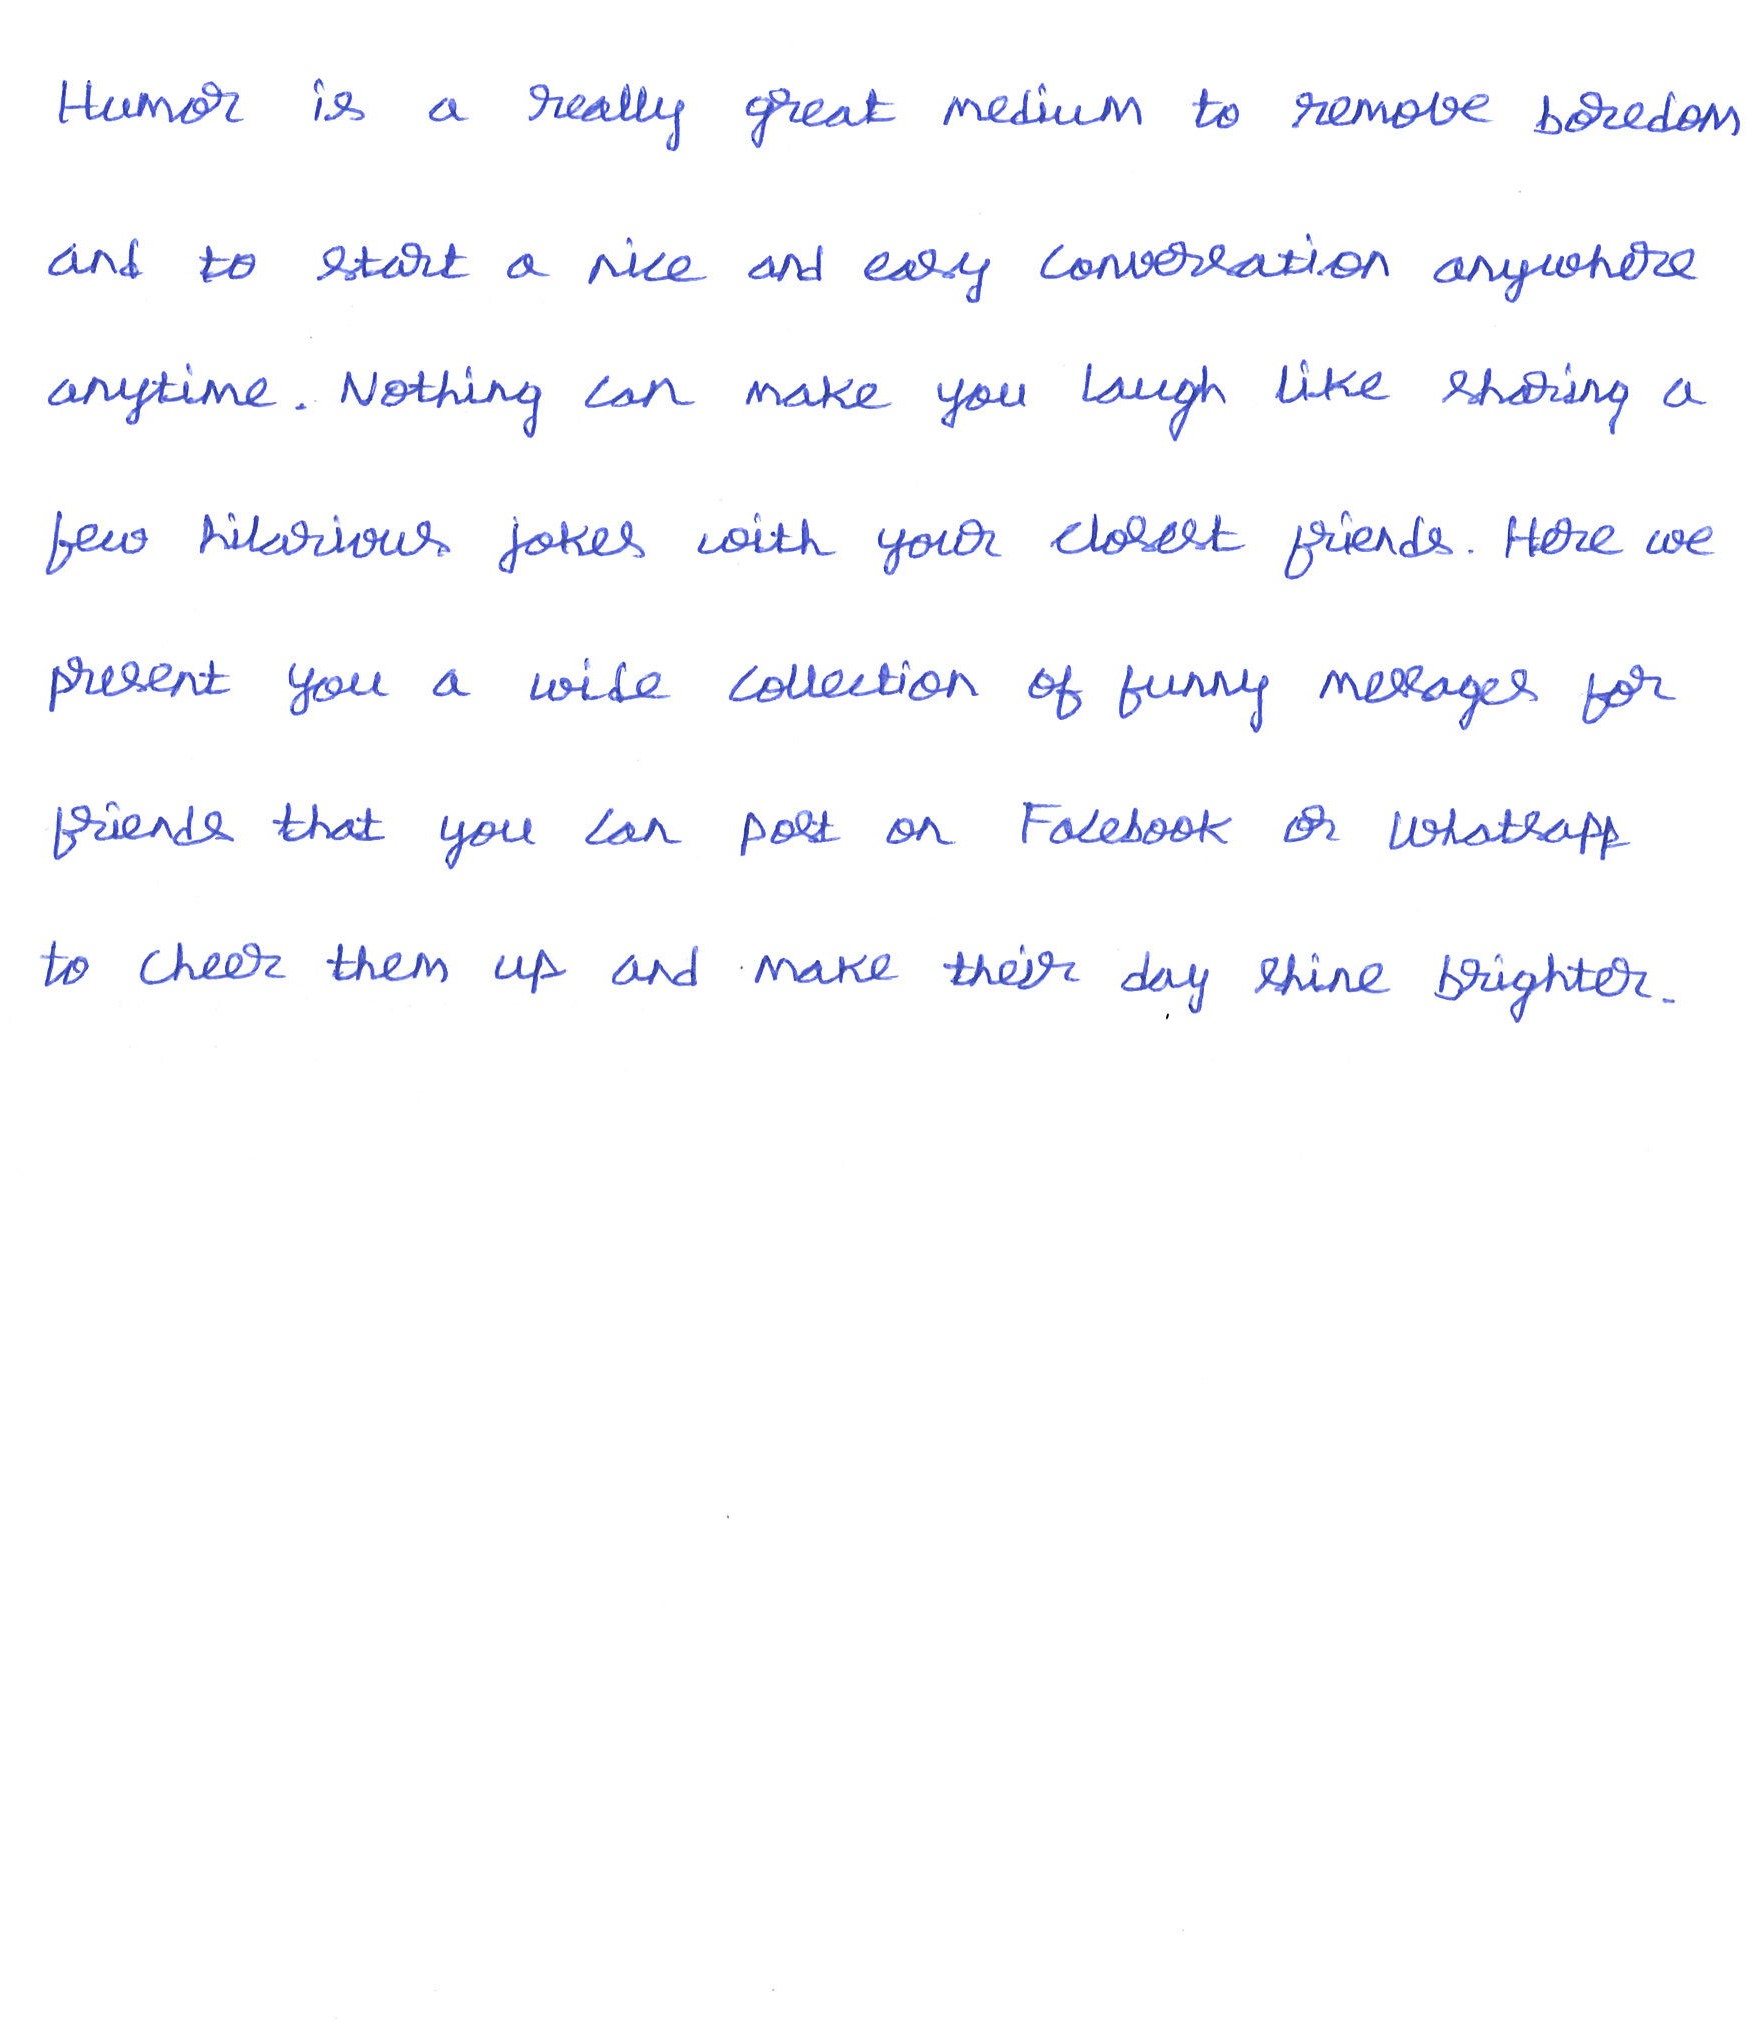 Humor is a really great medium to remove boredom
and to start a nice and easy conversation anywhere
anytime. Nothing can make you laugh like sharing a
few hilarious jokes with your closest friends. Here we
present you a wide collection of funny messages for
friends that you can post on Facebook or Whatsapp
to cheer them up and make their day shine brighter.